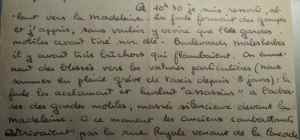 À 10h30 je suis remonté, al-
-lant vers la Madeleine. La foule formait des groupes
et j'appris, sans vouloir y croire que les gardes
mobiles avait tiré ... Boulevards malesherbes
il y avait trois bûchers qui flambaient. On emme-
nait des blessés vers les voitures particulières (nous
sommes en pleine grève de taxis depuis 8 jours). la
foule les acclamant et hurlant "assassins" à l'adres-
se des gardes mobiles, massés silencieux devant la
madeleine. À ce moment les anciens combattants
arrivaient par la rue Royale venant de la Concor